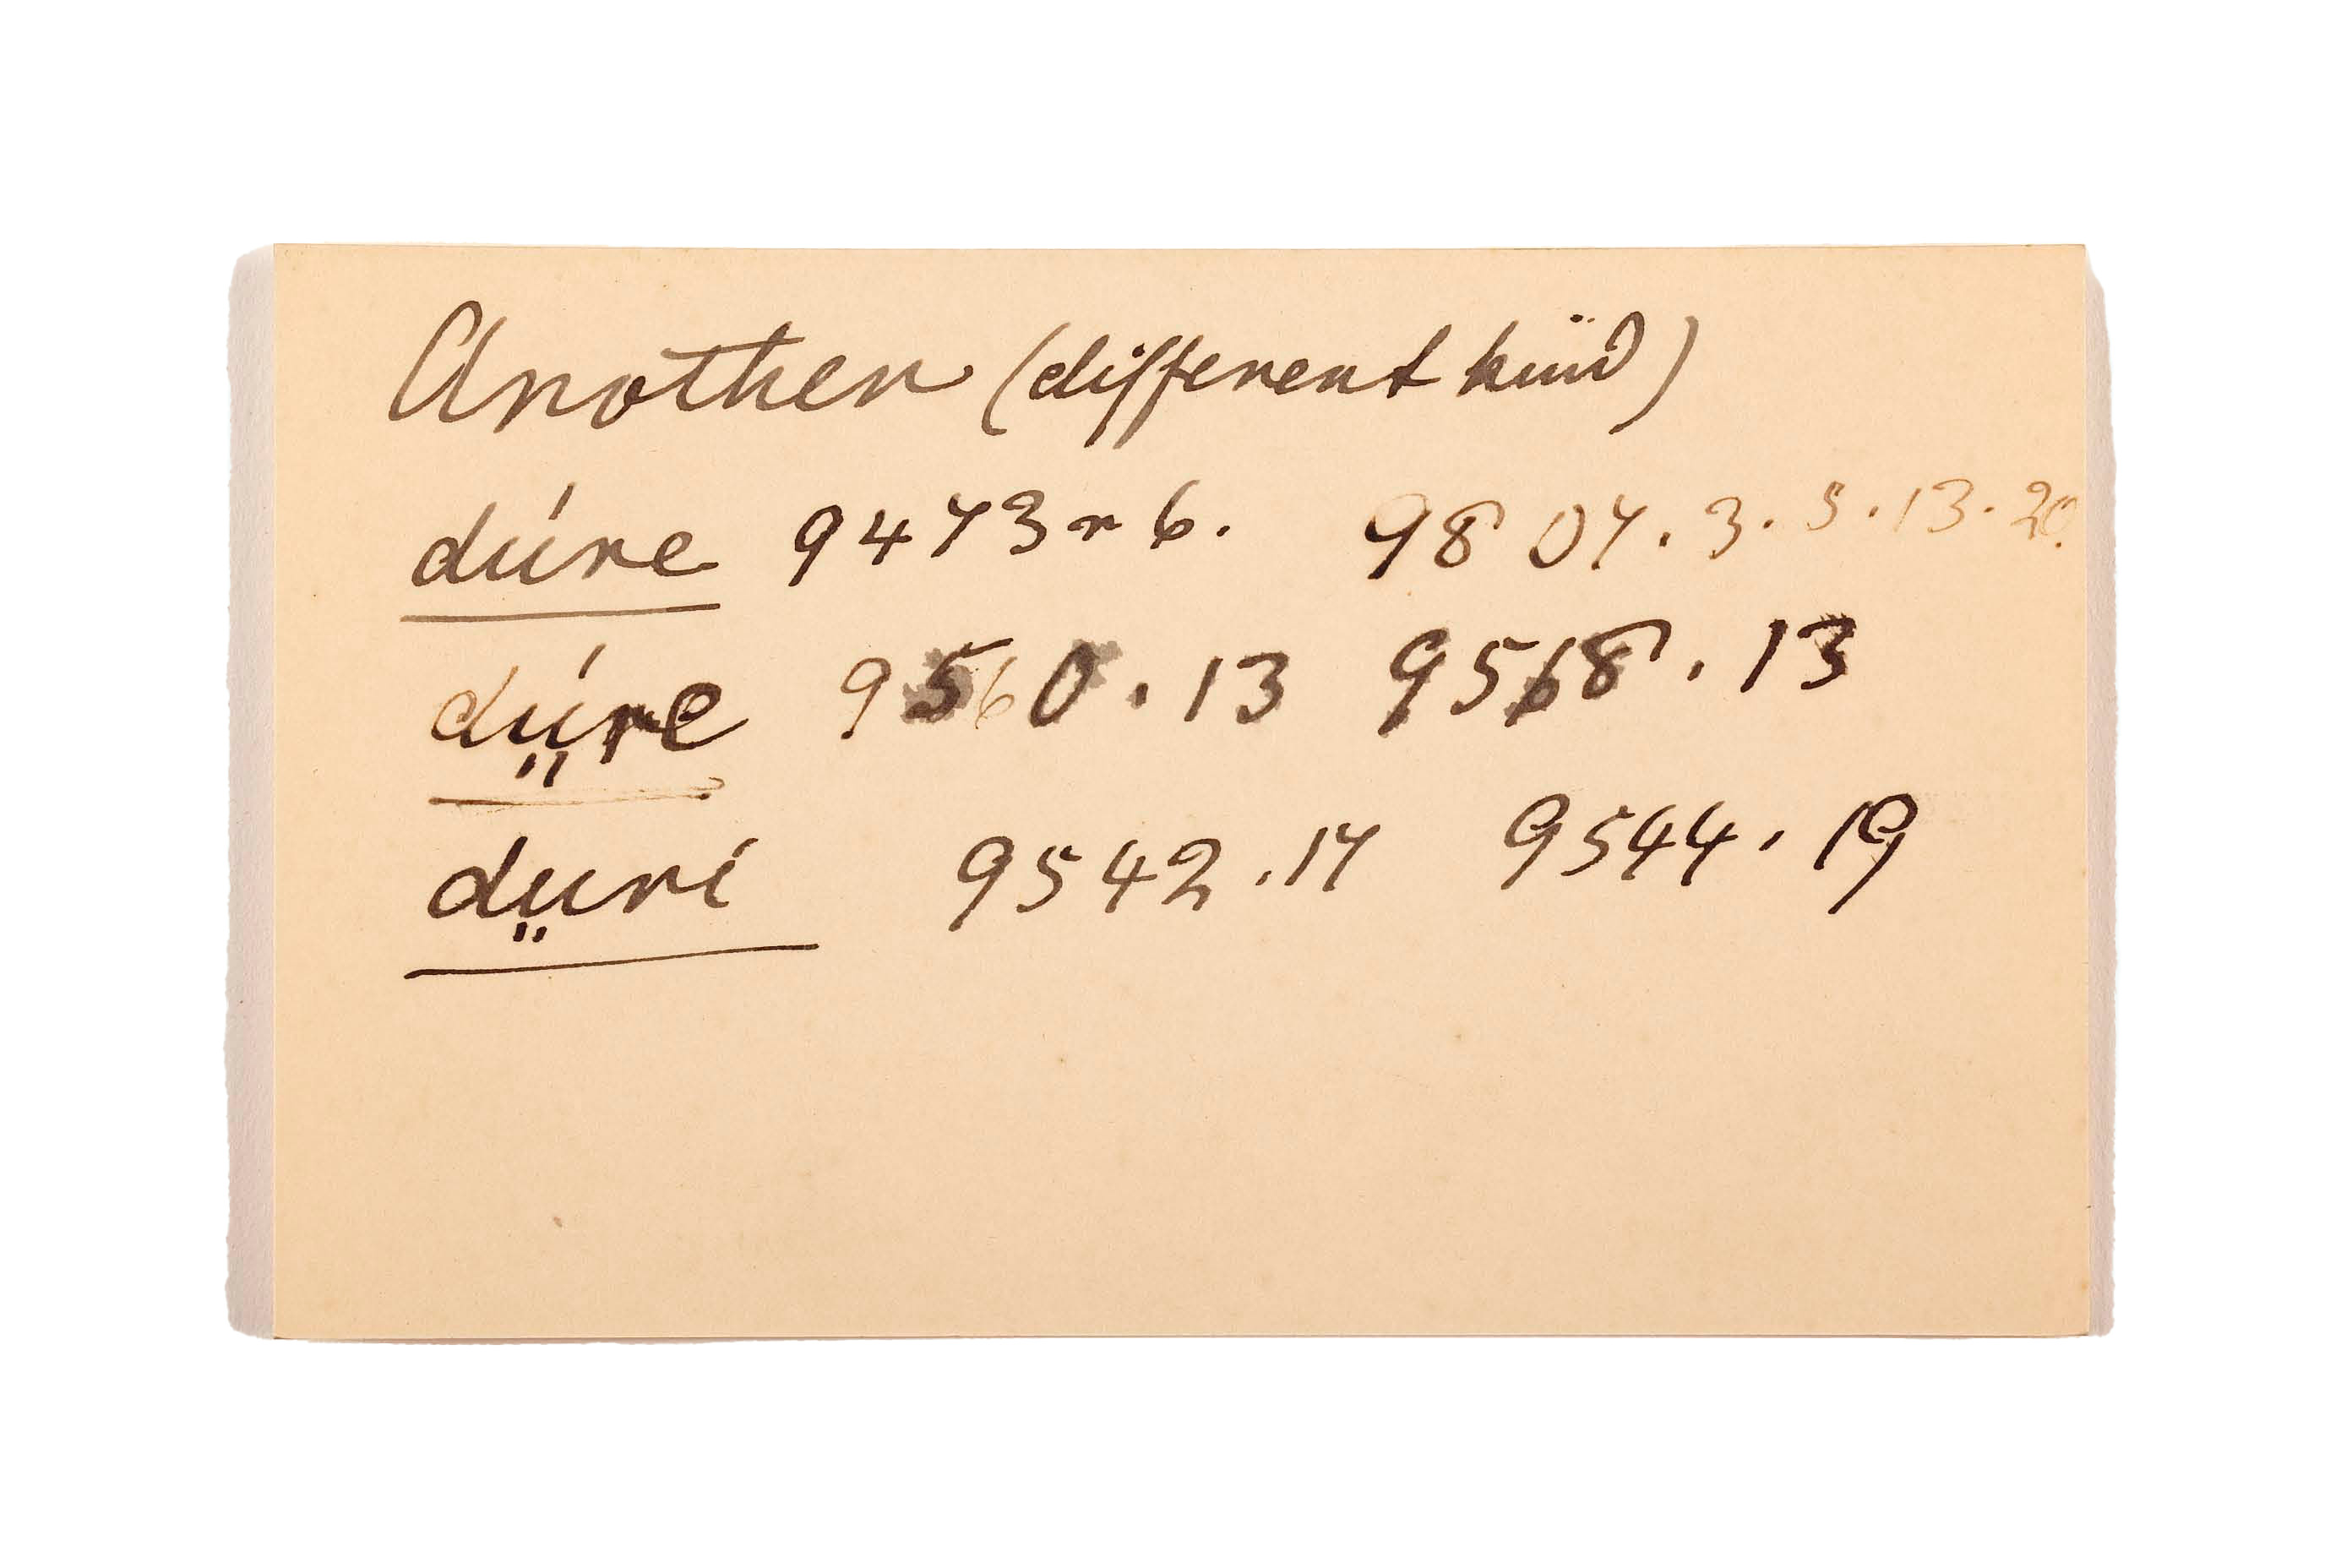 Another (different kind)
dúre 9473r6. 9807.3.5.13.20.
dṳ́re 9560.13 9568.13
dṳrí 9542.17 9544.19